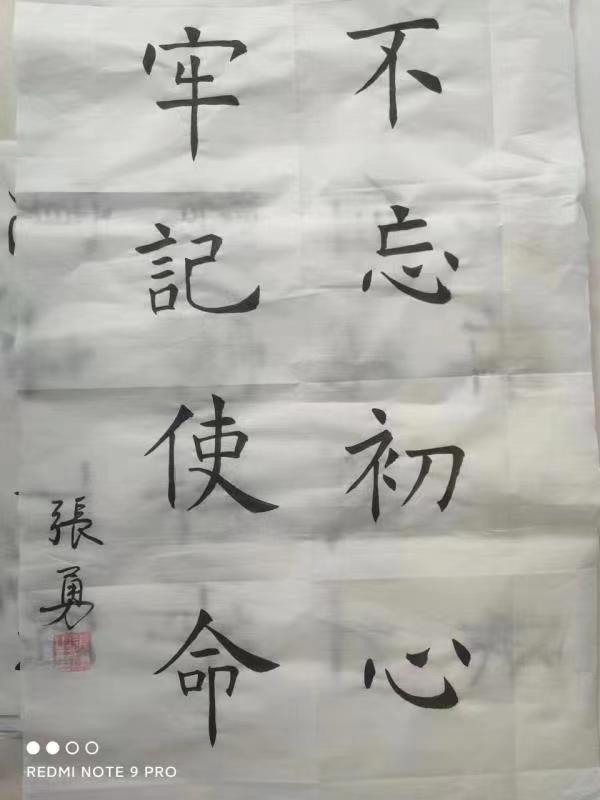 不忘初心
牢記使命
張勇
REDMI NOTE 9 PRO